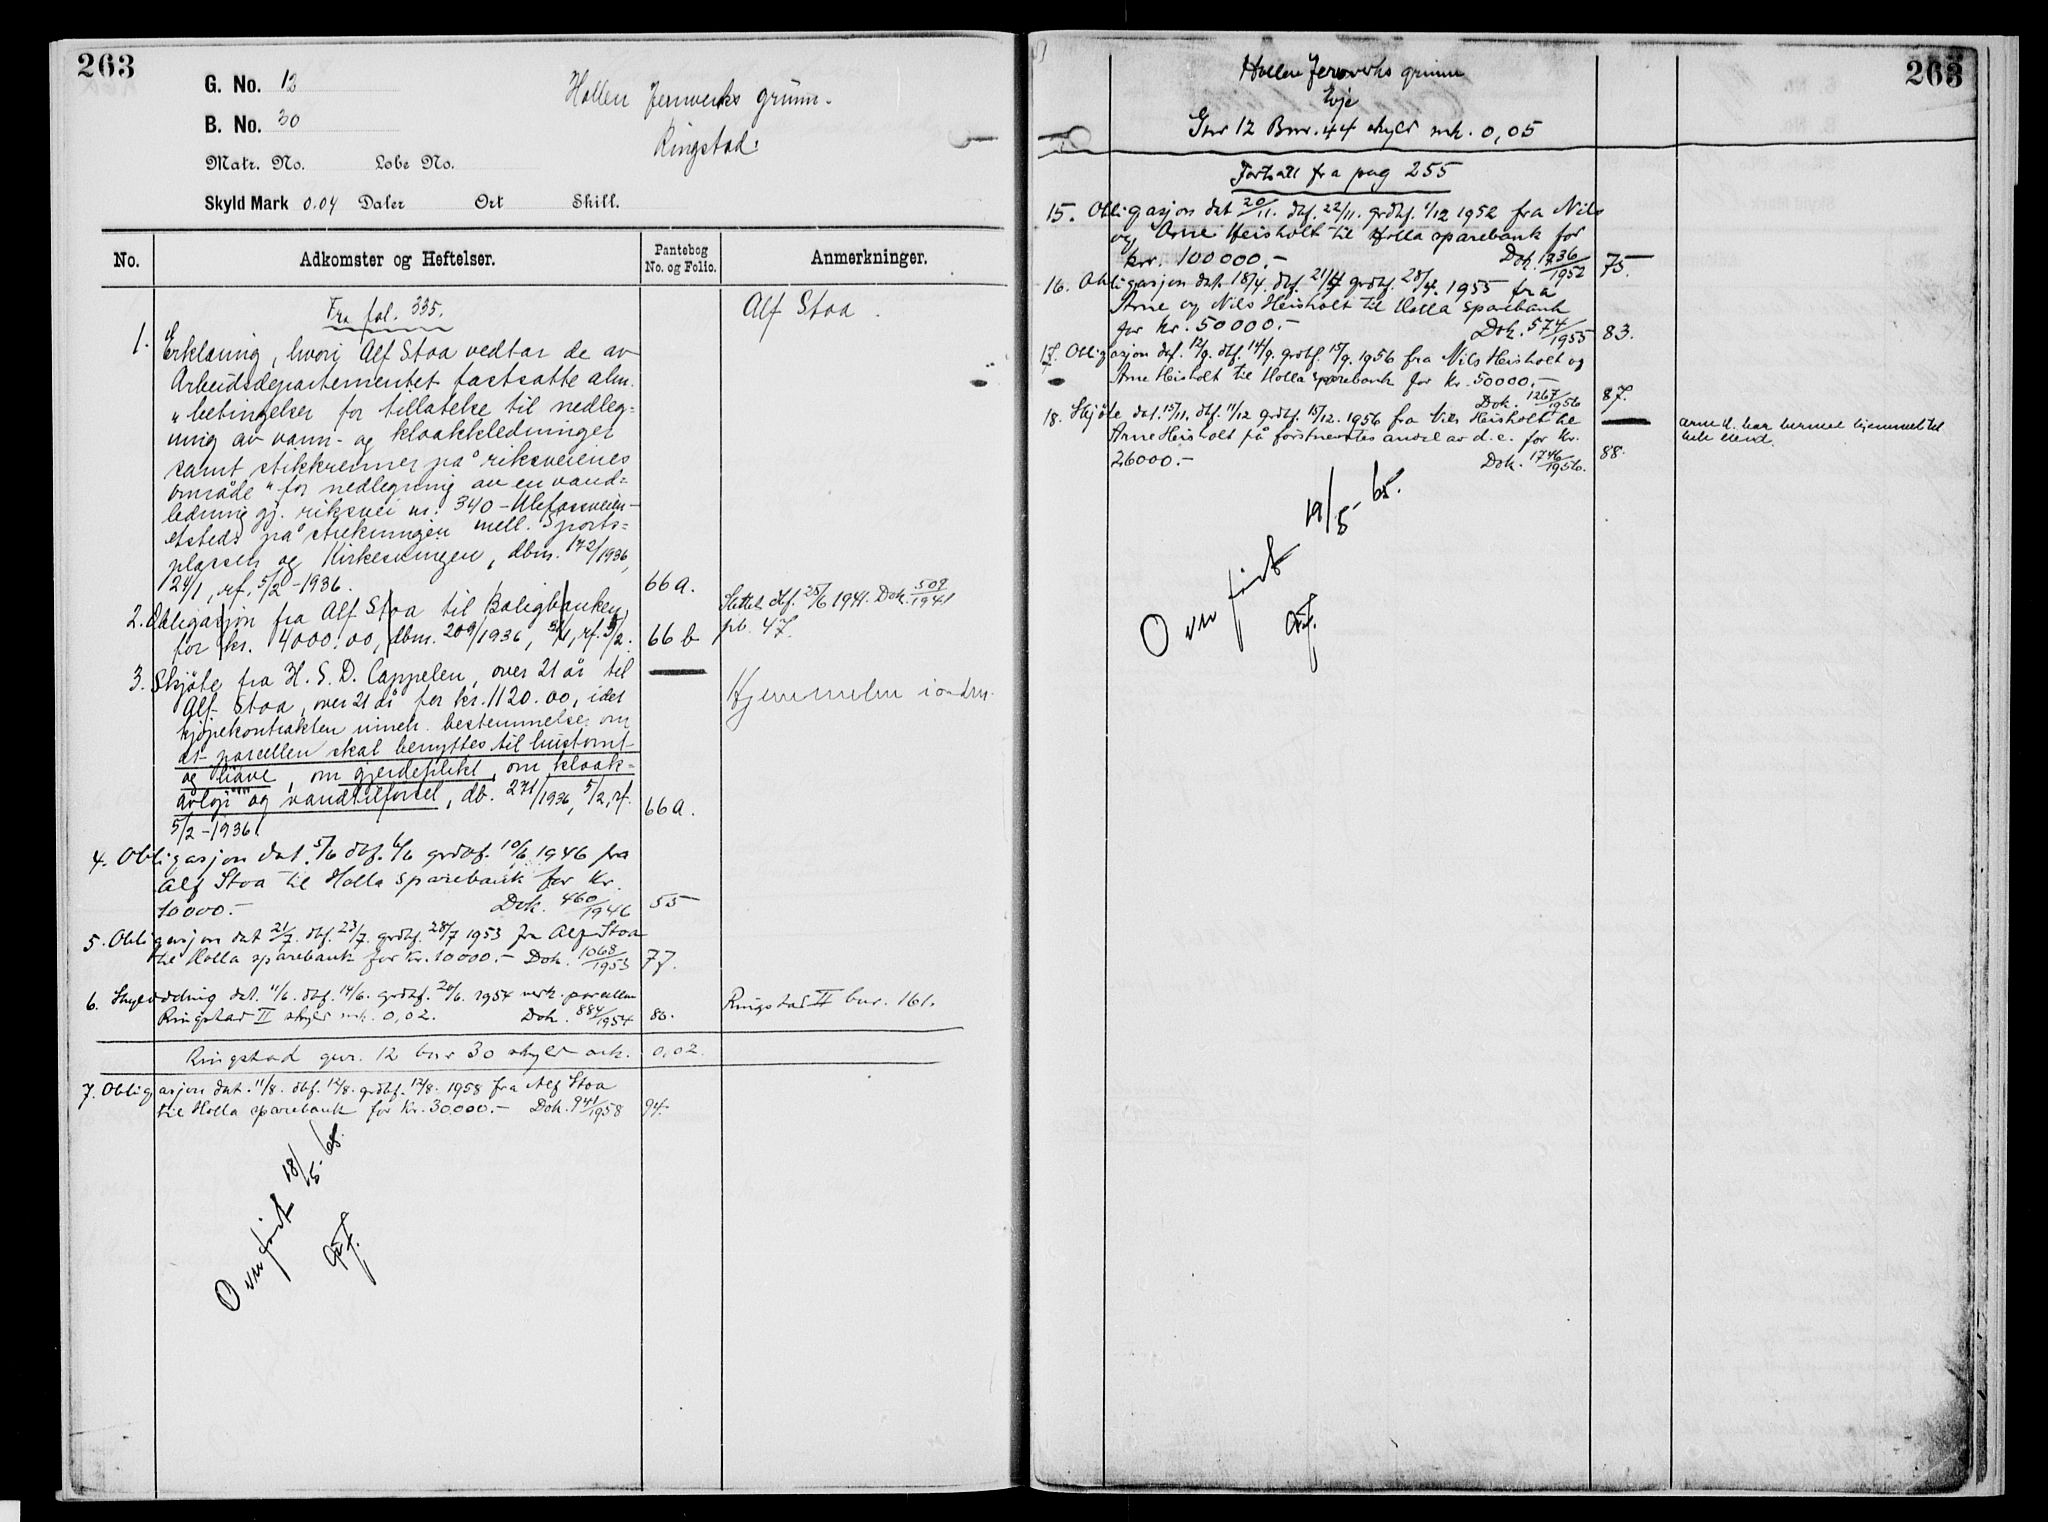 263
G. No. 12
Hollen Jernverks grunn.
B. No. 30
Ringstad.
Matr. No. Lobe No.
Skyld Mark 0.04 Daler Ort Skill.
No. Adkomster og Heftelser. Pantebog No. og Folio. Anmerkninger.
Fra fol. 335.
Alf Stoa.
1. Erklæring, hvori Alf Stoa vedtar de av
Arbeidsdepartementet fastsatte alm.
"betingelser for tillatelse til nedleg-
ning av vann- og kloakkledninger
samt stikkrenner på riksveienes
område" for nedlegning av en vand-
ledning gj. riksvei nr. 340 - Ulefossveien -
etsteds på strekningen mell. Sports-
plassen og Kirkesvingen, dbm. 172/1936,
24/1, rf. 5/2-1936. 66a.
2. Obligasjon fra Alf Stoa til Boligbanken
for kr. 4000.00, dbm. 209/1936, 31/1, rf. 5/2. 66 b
Slettet dbf. 25/6 1941. Dok. 509/1941
pb. 47.
3. Skjöte fra H. S. D. Cappelen, over 21 år til
Alf Stoa, over 21 år for kr. 1120.00, idet
kjöpekontrakten inneh. bestemmelse om
at parcellen skal benyttes til hustomt
og have, om gjerdeplikt, om kloak-
avlöp og vandtilförsel, db. 271/1936, 5/2, rf.
5/2-1936. 66a.
Hjemmelen i orden.
4. Obligasjon dat. 5/6 dbf. 6/6 grdbf. 10/6 1946 fra
Alf Stoa til Holla sparebank for kr.
10000.- Dok. 460/1946 55
5. Obligasjon dat 21/7. dbf. 23/7. grdbf. 28/7 1953 fra Alf Stoa
til Holla sparebank for kr. 10000.- Dok. 1068/1953 77.
6. Skylddeling dat. 11/6. dbf. 14/6. grdbf. 20/6. 1954 vedk. parcellen
Ringstad II skyld mk. 0,02. Dok. 884/1954 80.
Ringstad II bnr. 161.
Ringstad gnr. 12 bnr 30 skyld mk. 0,02.
7. Obligasjon dat. 11/8. dbf. 12/8. grdbf. 12/8. 1958 fra Alf Stoa
til Holla sparebank for kr. 30000.- Dok. 941/1958 94.
Overført 18/5-65.
263
Hollen Jernverks grunn
Evje
Gnr 12 Bnr. 44 skyld mk. 0,05
Fortsatt fra pag 255
15. Obligasjon dat 20/11. dbf. 22/11. grdbf. 1/12 1952 fra Nils
og Arne Heisholt til Holla sparebank for
kr. 100000.- Dok. 1736/1952 75.
16. Obligasjon dat. 18/4. dbf. 21/4 grdbf. 28/4. 1955 fra
Arne og Nils Heisholt til Holla Sparebank
for kr. 50000.- Dok. 574/1955 83.
17. Obligasjon dat. 12/9. dbf. 14/9. grdbf. 15/9. 1956 fra Nils Heisholt og
Arne Heisholt til Holla sparebank for kr. 50000.-
Dok. 1267/1956 87.
18. Skjöte dat. 15/11. dbf. 11/12 grdbf. 15/12. 1956 fra Nils Heisholt til
Arne Heisholt på förstnevntes andel av d.e. for kr.
26000.- Dok. 1746/1956. 88.
Arne H. har hermed hjemmel til
hele eiend.
Overført 19/5-65.